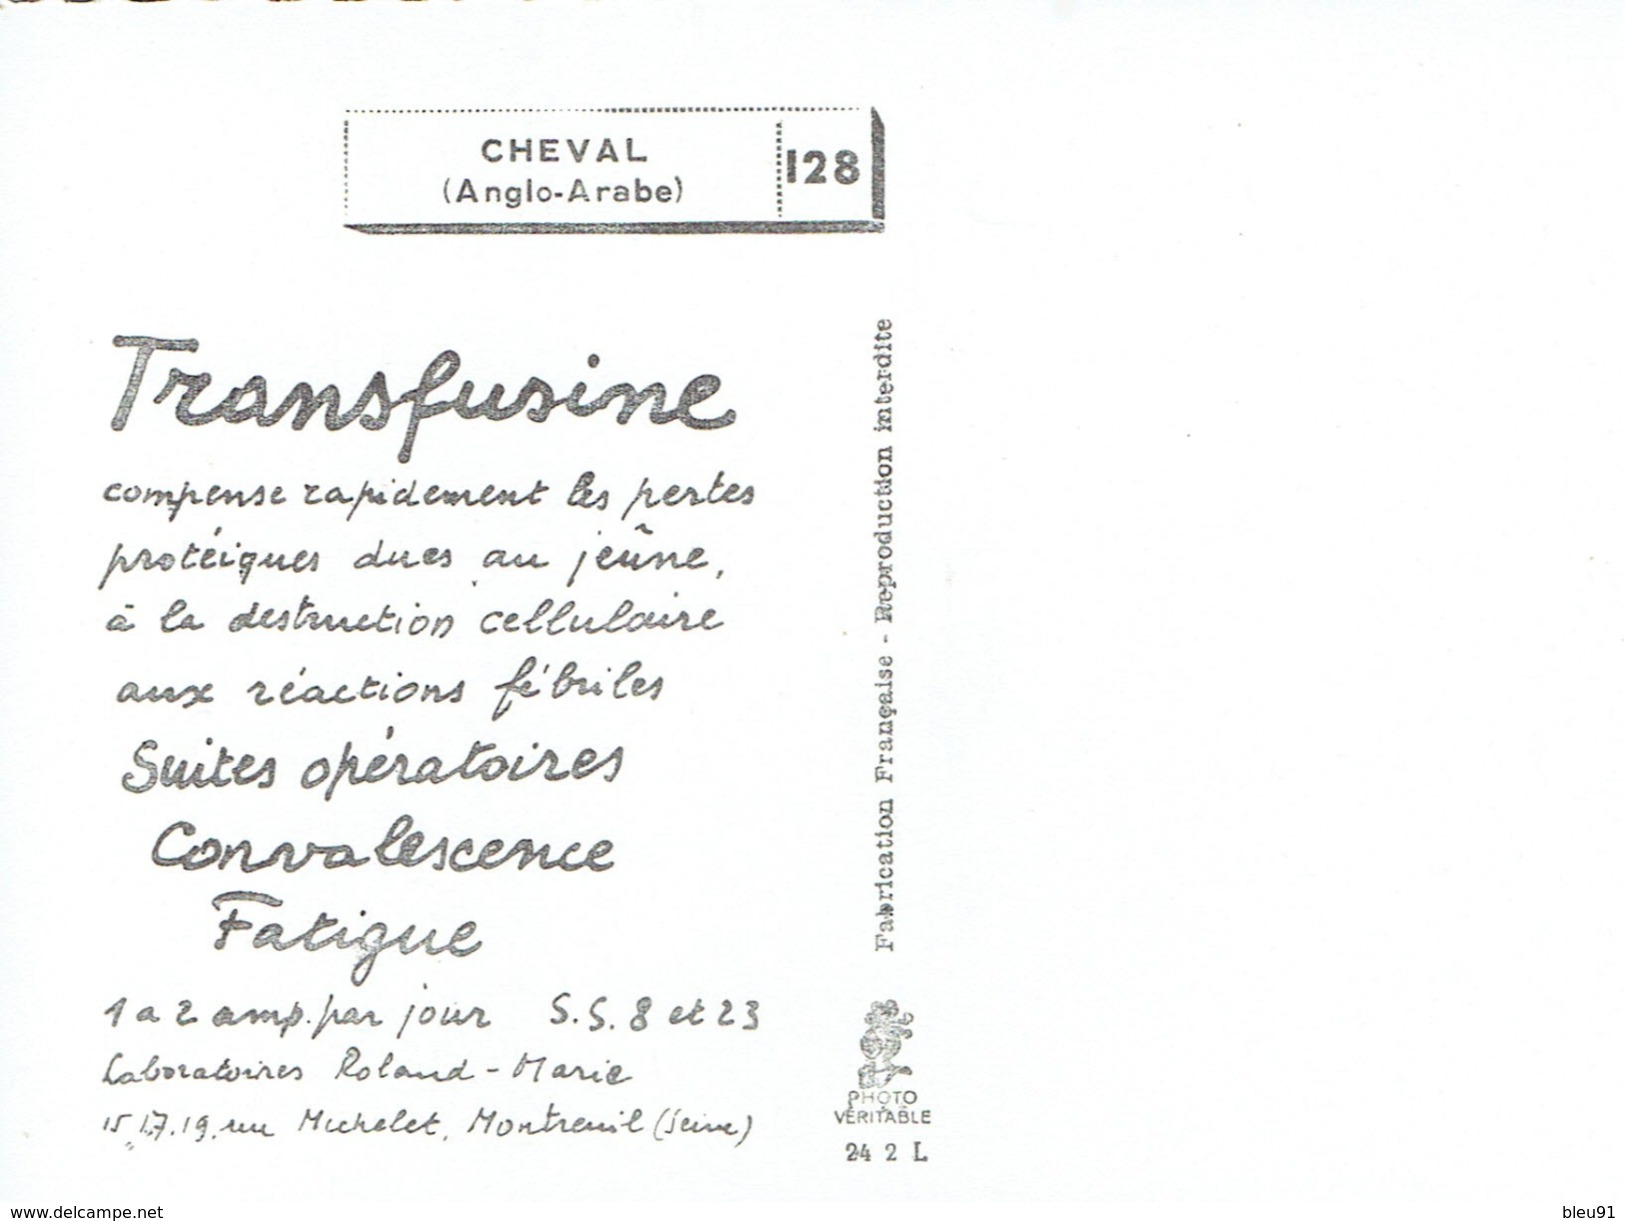 CHEVAL
(Anglo-Arabe)
128
Transfusine
compense rapidement les pertes
protéiques dues au jeûne,
à la destruction cellulaire
aux réactions fébriles
Suites opératoires
Convalescence
Fatigue
1 a 2 amp. par jour S.S. 8 et 23
Laboratoires Roland-Marie
15.17.19, rue Michelet, Montreuil (Seine)
Fabrication Française - Reproduction interdite
PHOTO
VÉRITABLE
24 2 L
www.delcampe.net
bleu91